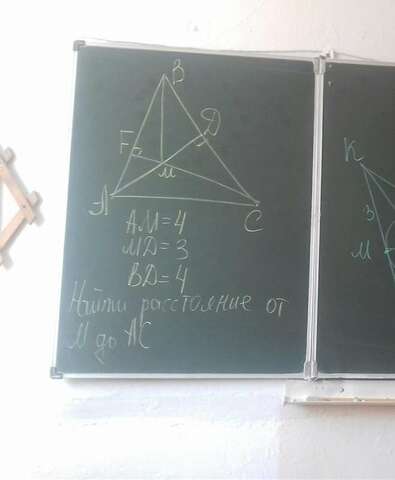 B
D
F
M
A
C
AM=4
MD=3
BD=4
Найти расстояние от
M до AC
K
3
M